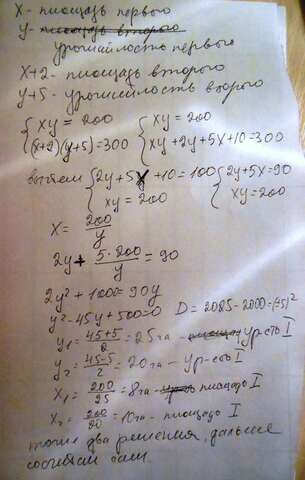 x - площадь первого
y - площадь второго
урожайность первого
x+2 - площадь второго
y+5 - урожайность второго
{ xy = 200 { xy = 200
(x+2)(y+5)=300 xy+2y+5x+10=300
вычтем { 2y+5x+10=100 { 2y+5x=90
xy=200 xy=200
x = 200/y
2y + 5·200/y = 90
2y²+1000=90y
y²-45y+500=0 D=2025-2000=(5)²
y₁ = 45+5/2 = 25га - ур-сть I
y₂ = 45-5/2 = 20га - ур-сть I
x₁ = 200/25 = 8га - площадь I
x₂ = 200/20 = 10га - площадь I
тоже два решения, дальше
сосчитай сам.